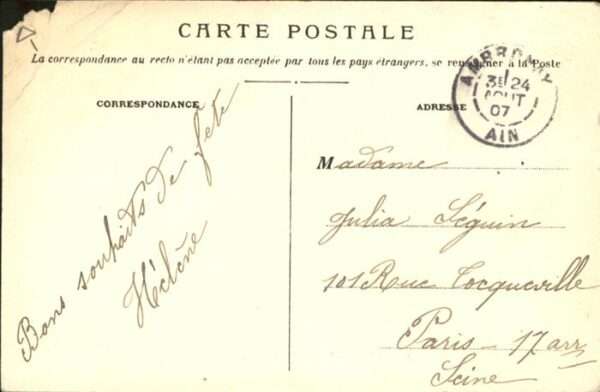 CARTE POSTALE
La correspondance au recto n'étant pas acceptée par tous les pays étrangers, se renseigner à la Poste
CORRESPONDANCE
Bons souhaits de fete
Hélène
ADRESSE
AMBRONAY
3E 24
AOUT
07
AIN
Madame
Julia Séguin
101 Rue Tocqueville
Paris - 17 arr
Seine